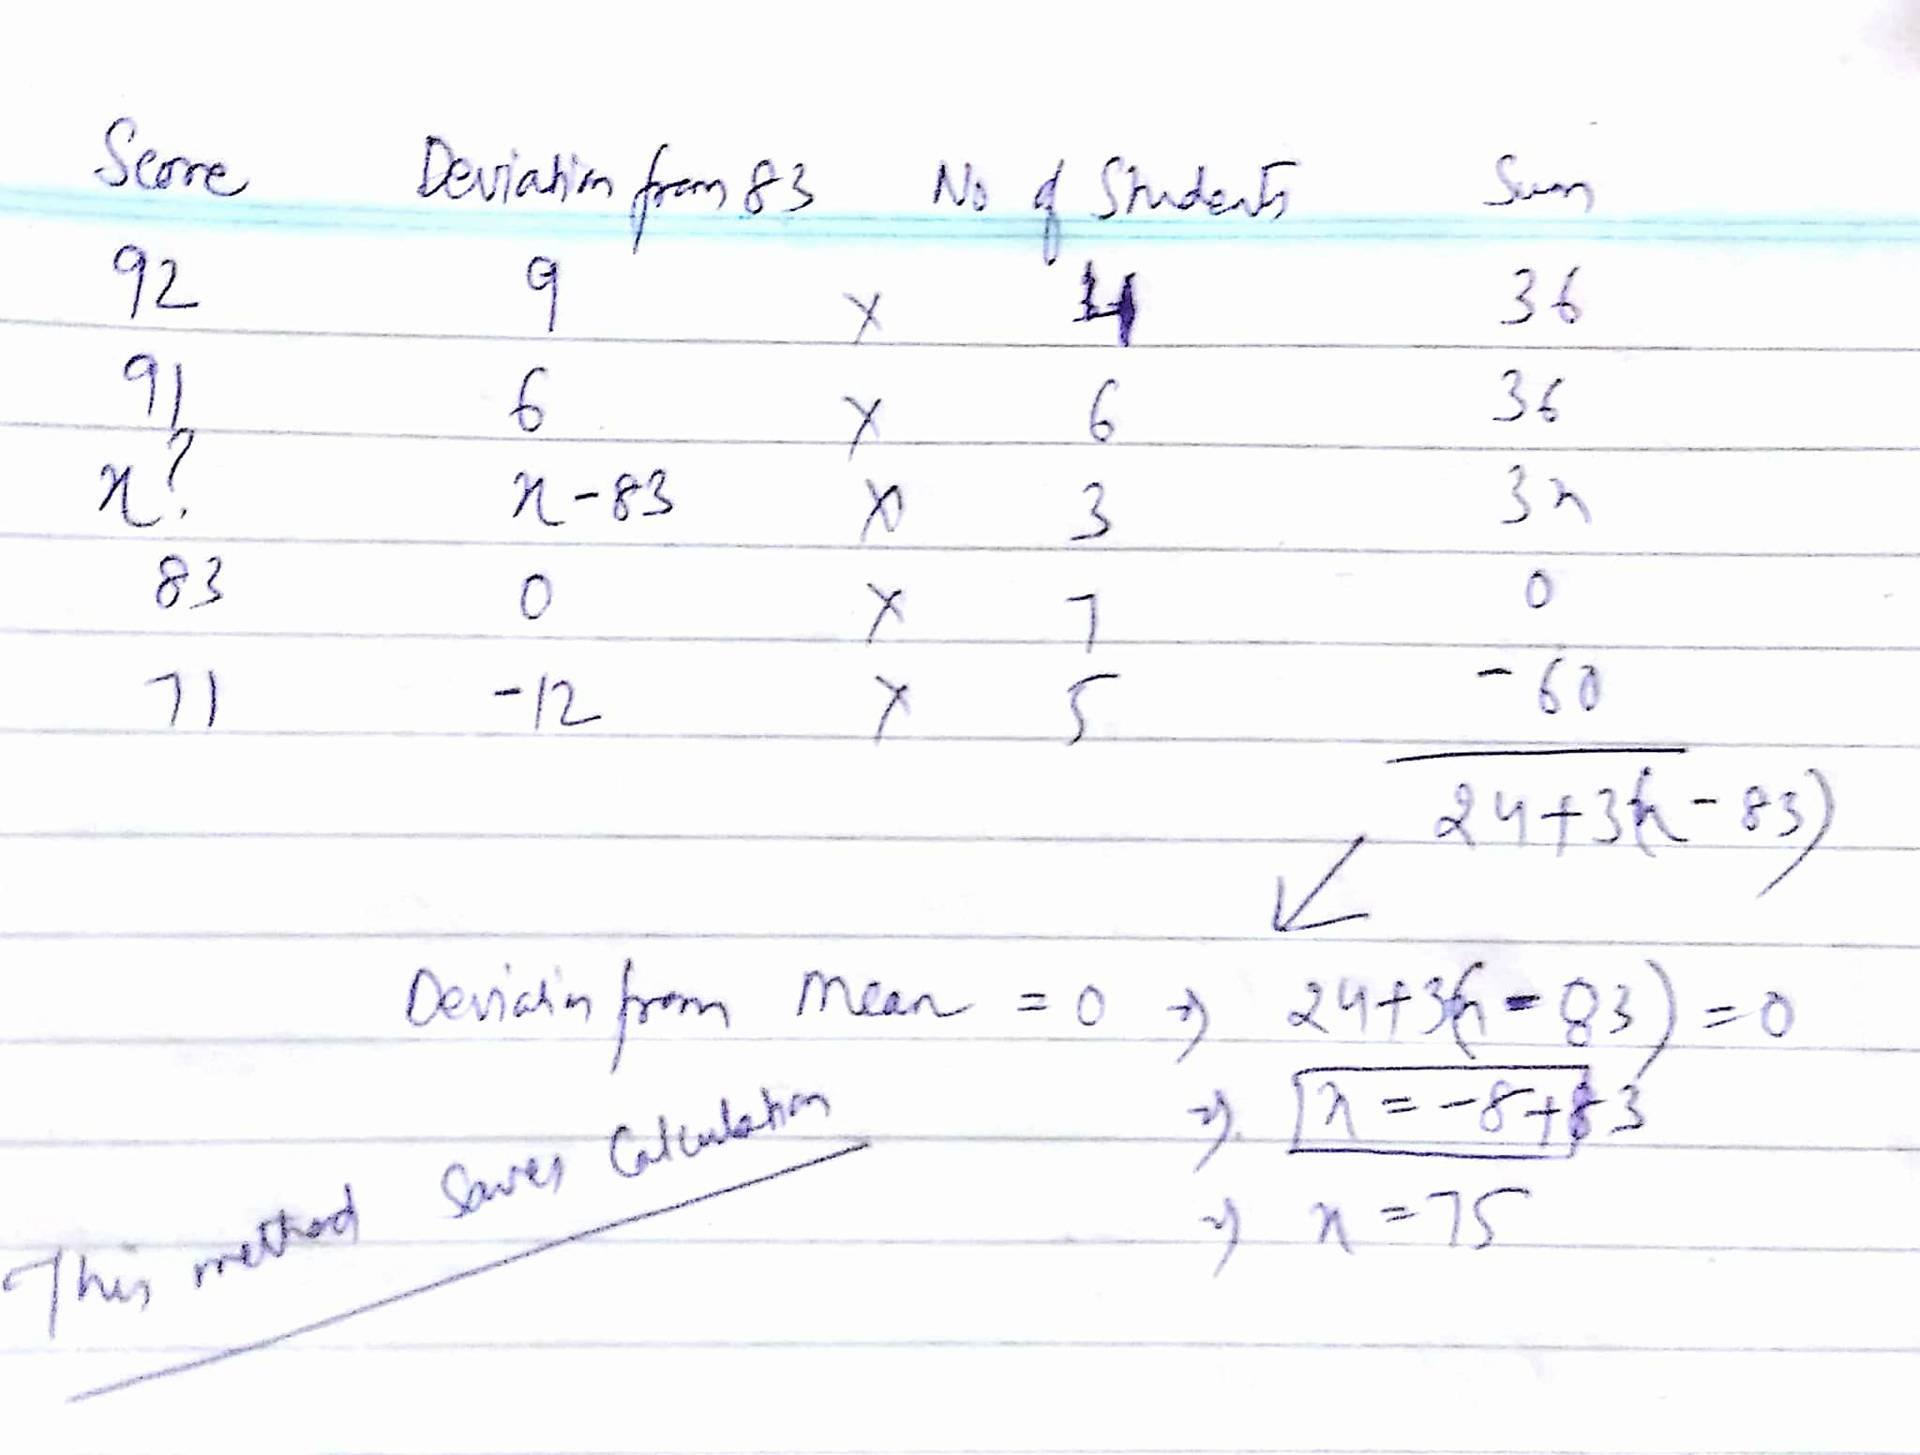 Score Deviation from 83 No of Students Sum
92 9 x 4 36
91 6 x 6 36
x? x-83 x 3 3x
83 0 x 7 0
71 -12 x 5 -60
24+3(x-83)
Deviation from Mean = 0 ⇒ 24+3(x-83)=0
⇒ x = -8+83
⇒ x = 75
This method Saves Calculation